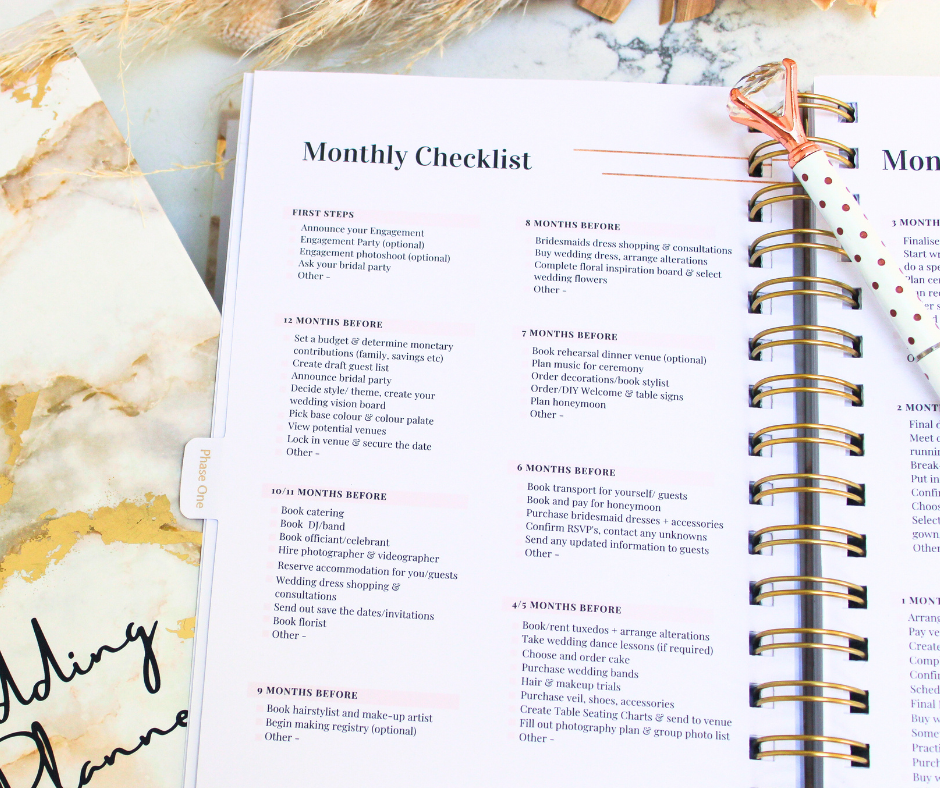 Monthly Checklist
FIRST STEPS
Announce your Engagement
Engagement Party (optional)
Engagement photoshoot (optional)
Ask your bridal party
Other -
12 MONTHS BEFORE
Set a budget & determine monetary
contributions (family, savings etc)
Create draft guest list
Announce bridal party
Decide style/ theme, create your
wedding vision board
Pick base colour & colour palate
View potential venues
Lock in venue & secure the date
Other -
10/11 MONTHS BEFORE
Book catering
Book DJ/band
Book officiant/celebrant
Hire photographer & videographer
Reserve accommodation for you/guests
Wedding dress shopping &
consultations
Send out save the dates/invitations
Book florist
Other -
9 MONTHS BEFORE
Book hairstylist and make-up artist
Begin making registry (optional)
Other -
8 MONTHS BEFORE
Bridesmaids dress shopping & consultations
Buy wedding dress, arrange alterations
Complete floral inspiration board & select
wedding flowers
Other -
7 MONTHS BEFORE
Book rehearsal dinner venue (optional)
Plan music for ceremony
Order decorations/book stylist
Order/DIY Welcome & table signs
Plan honeymoon
Other -
6 MONTHS BEFORE
Book transport for yourself/ guests
Book and pay for honeymoon
Purchase bridesmaid dresses + accessories
Confirm RSVP's, contact any unknowns
Send any updated information to guests
Other -
4/5 MONTHS BEFORE
Book/rent tuxedos + arrange alterations
Take wedding dance lessons (if required)
Choose and order cake
Purchase wedding bands
Hair & makeup trials
Purchase veil, shoes, accessories
Create Table Seating Charts & send to venue
Fill out photography plan & group photo list
Other -
Phase One
dding
Planne
Mon
3 MONTH
Finalise
Start wr
do a spe
2 MONT
Final d
Meet
runnin
Break-
Put in
Confir
Choos
Select
gown
Other
1 MONT
Arrang
Pay ve
Create
Comp
Confir
Sched
Final
Buy w
Some
Practi
Purch
Buy w